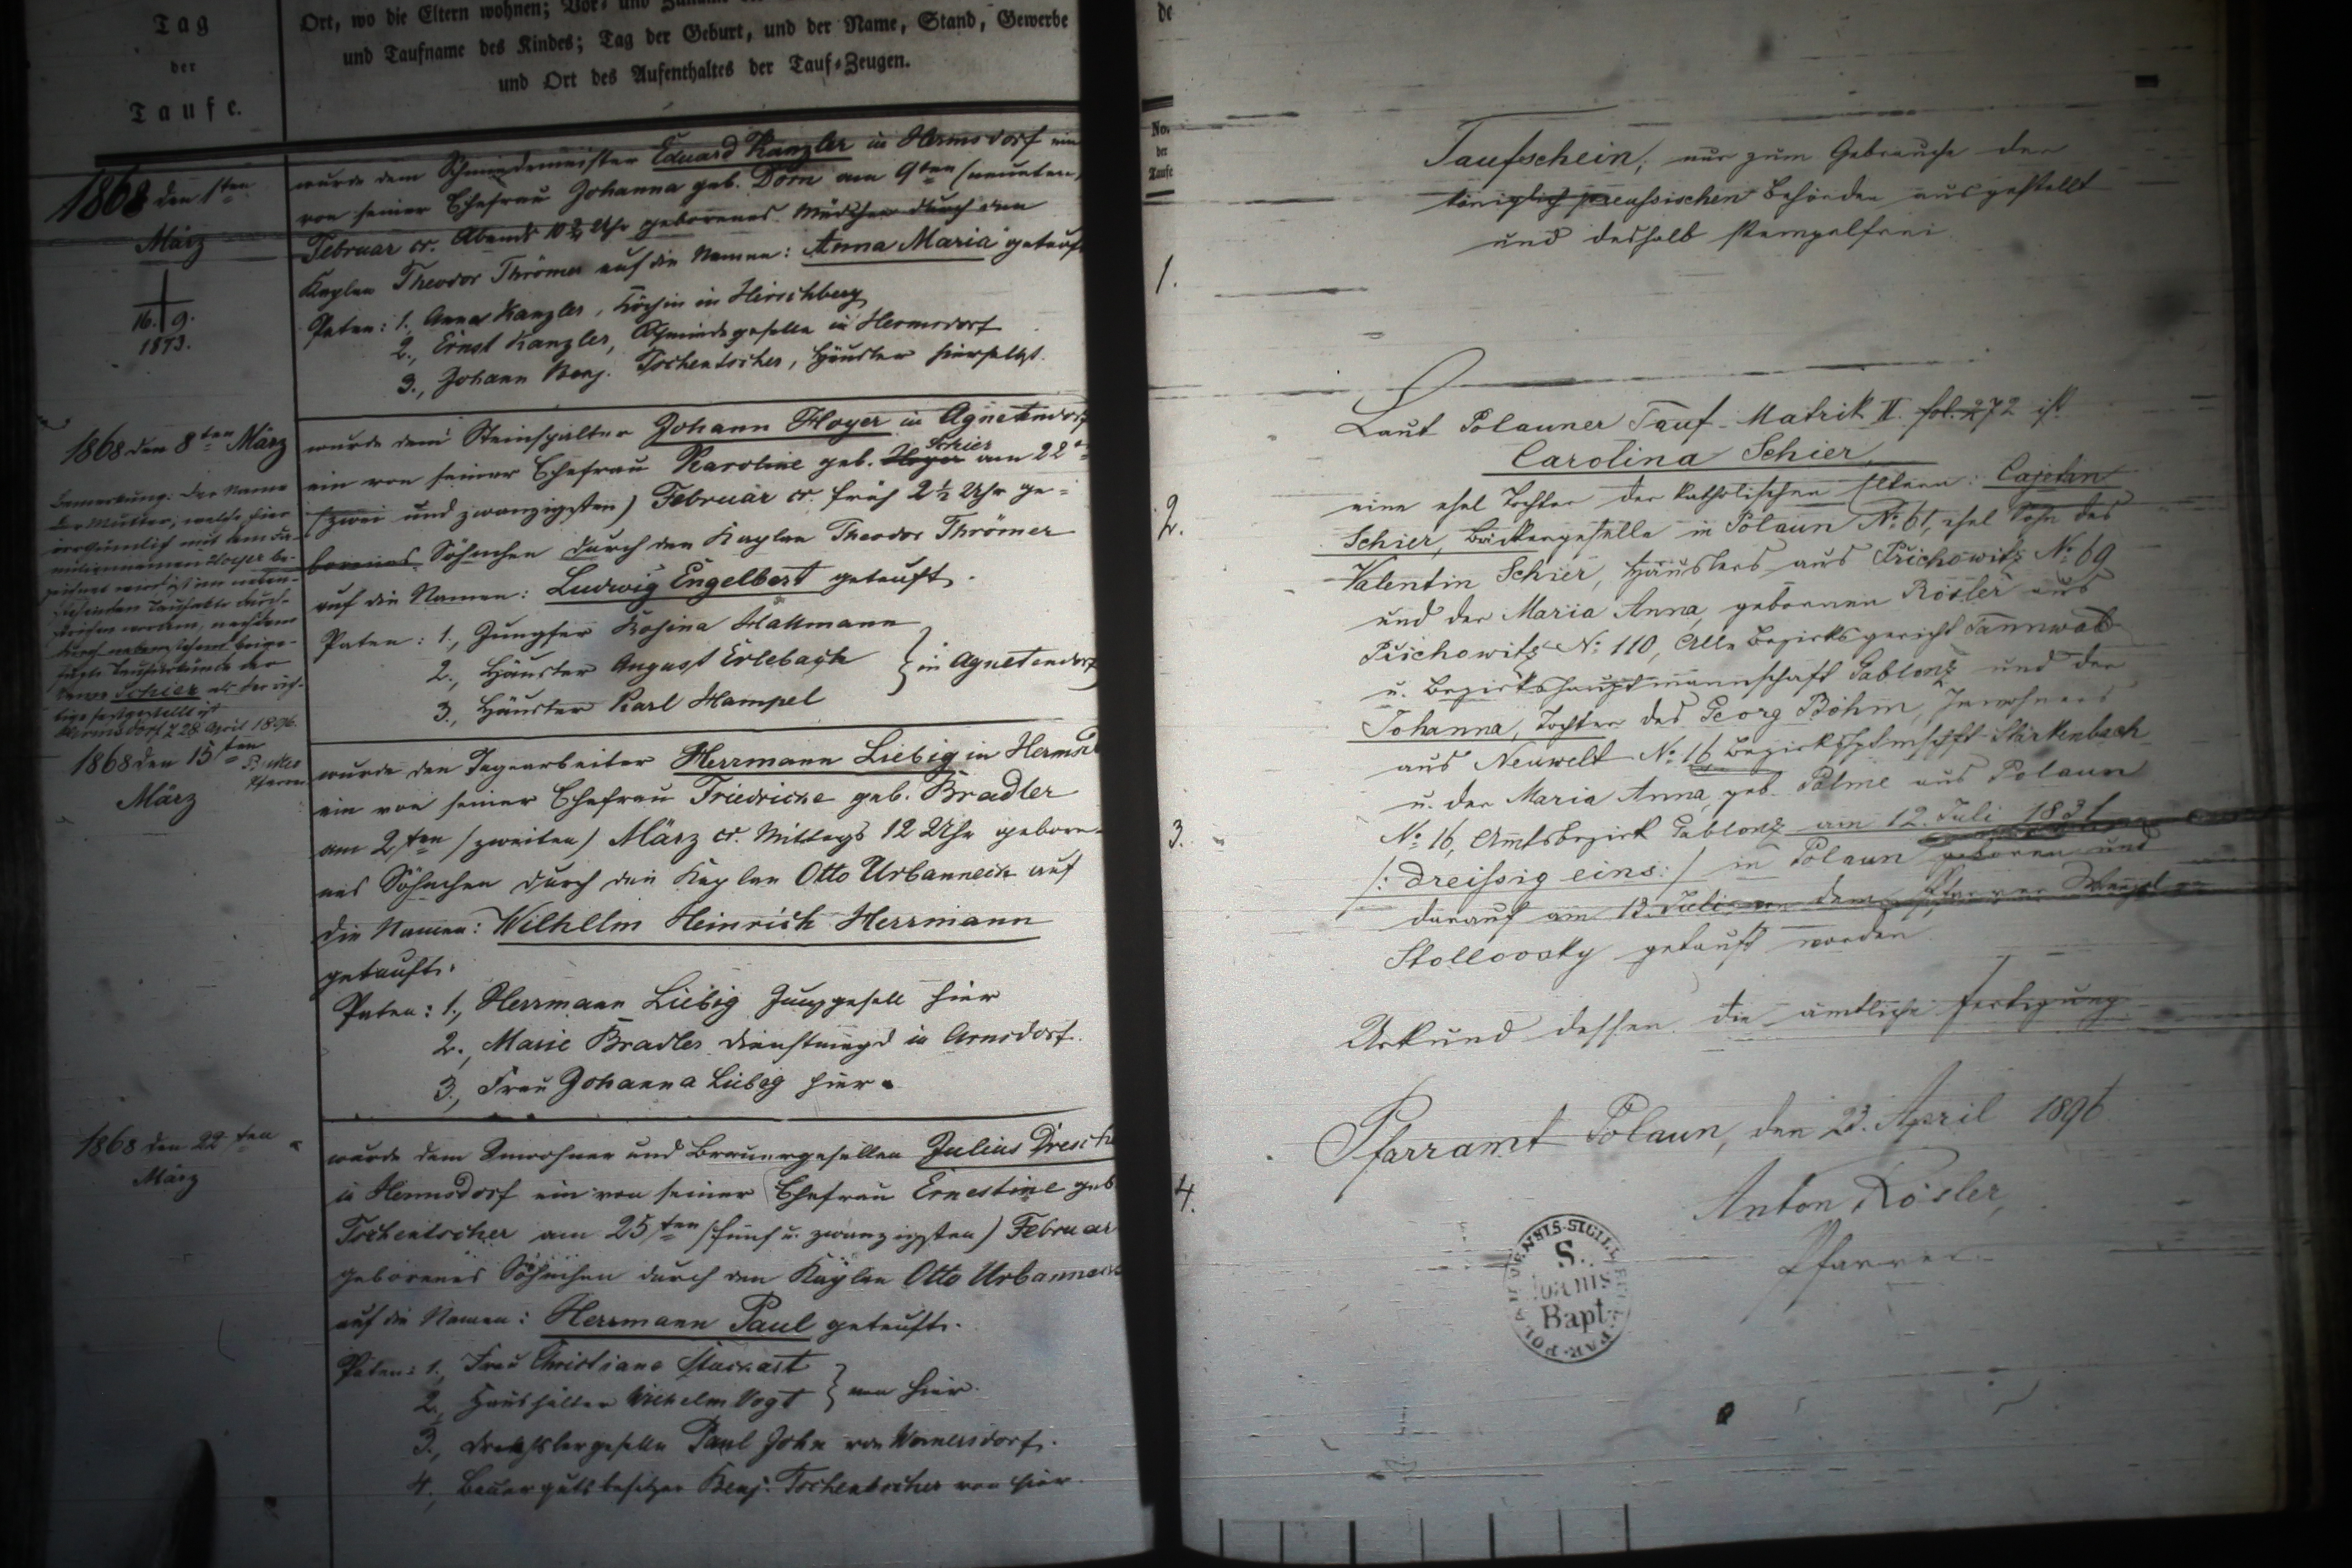 Tag
der
Taufe.
Ort, wo die Eltern wohnen; Vor- und Zuname
und Taufname des Kindes; Tag der Geburt, und der Name, Stand, Gewerbe
und Ort des Aufenthaltes der Tauf-Zeugen.
1868 den 1ten
März
16. 9.
1873.
wurde dem Schmiedemeister Eduard Kanzler in Hermsdorf ein
von seiner Ehefrau Johanna geb. Dorn am 9ten (neunten)
Februar cr. Abends Uhr geborenes Mädchen durch den
Kaplan Theodor Thrömer auf die Namen: Anna Maria getauft
Paten: 1, Anna Kanzler, Köchin in Hirschberg
2., Ernst Kanzler, Schmiedegeselle in Hermsdorf
3., Johann Benj. Tschentscher, Häusler hierselbst.
1868 den 8ten März
Bemerkung: Der Name
der Mutter, welche hier
irrthümlich mit dem Fa-
miliennamen Hoyer be-
zeichnet wird, ist im neben-
stehenden Taufakte durch-
strichen worden, nachdem
durch nebenstehend beige-
fügte Taufurkunde der
Name Schier als der rich-
tige festgestellt ist
Hermsdorf 28 April 1896.
Pfarrer
wurde dem Steinspalter Johann Hoyer in Agnetendorf
ein von seiner Ehefrau Karoline geb. Hoyer Schier am 22ten
(zwei und zwanzigsten) Februar cr. früh 2½ Uhr ge-
borenes Söhnchen durch den Kaplan Theodor Thrömer
auf die Namen: Ludwig Engelbert getauft.
Paten: 1., Jungfer Rosina Hallmann
2., Häusler August Erlebach } in Agnetendorf
3., Häusler Karl Hampel
1868 den 15ten
März
wurde den Tagearbeiter Herrmann Liebig in Hermsd
ein von seiner Ehefrau Friedricke geb. Bradler
am 2ten (zweiten) März cr. Mittags 12 Uhr gebore-
nes Söhnchen durch den Kaplan Otto Urbanneck auf
die Namen: Wilhelm Heinrich Herrmann
getauft.
Paten: 1., Herrmann Liebig Junggesell hier
2., Marie Bradler Dienstmagd in Arnsdorf.
3., Frau Johanna Liebig hier.
1868 den 22ten
März
wurde dem Inwohner und Brauergesellen Julius Dresch
in Hermsdorf ein von seiner Ehefrau Ernestine geb
Tschentscher am 25ten (fünf u. zwanzigsten) Februar
geborenes Söhnchen durch den Kaplan Otto Urbanneck
auf die Namen: Herrmann Paul getauft.
Paten: 1., Frau Christiane
2., Haushälter Wilhelm Vogt } von hier.
3., Drechslergeselle Paul John von Wernersdorf.
4., Bauergutsbesitzer Benj. Tschentscher von hier.
de
No.
der
Taufe
1.
2.
3.
4.
Taufschein, nur zum Gebrauche der
königlich preussischen Behörden ausgestellt
und deshalb stempelfrei
Laut Polauner Tauf-Matrik II. fol. 272 ist
Carolina Schier,
eine ehel Tochter der katholischen Eltern: Cajetan
Schier, Bäckergeselle in Polaun No. 61, ehel Sohn des
Valentin Schier, Häuslers aus Přichowitz No. 69
und der Maria Anna, gebornen Rösler aus
Přichowitz No. 110, Alle Bezirksgericht Tannwald
u. Bezirkshauptmannschaft Gablonz und der
Johanna, Tochter des Georg Böhm, Inwohners
aus Neuwelt No. 16 Bezirkshptmschft Starkenbach
u. der Maria Anna, geb. Palme aus Polaun
No. 16, Amtsbezirk Gablonz am 12. Juli 1831
/: dreissig eins :/ in Polaun geboren und
darauf am 13. Juli von dem Pfarrer Wenzel
Stollovsky getauft worden
Urkund dessen die amtliche Fertigung
Pfarramt Polaun, den 23. April 1896
Anton Rösler,
Pfarrer
S.
Bapt.